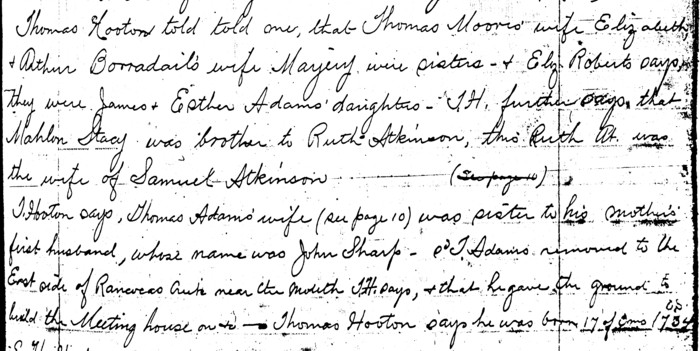 Thomas Hooton told told one, that Thomas Moore's wife Elizabeth
& Arthur Borradail's wife Marjery were sisters - & Eliz Roberts says,
they were James & Esther Adams' daughters - T.H. further says that
Mahlon Stacy was brother to Ruth Atkinson, this Ruth At was
the wife of Samuel Atkinson (See page 10)
T. Hooton says, Thomas Adams' wife (see page 10) was sister to his mother's
first husband, whose name was John Sharp - sd T. Adams removed to the
East side of Rancocas Creek near the mouth T.H. says, & that he gave the ground to
build the Meeting house on &c - Thomas Hooton says he was born 17 of 1734